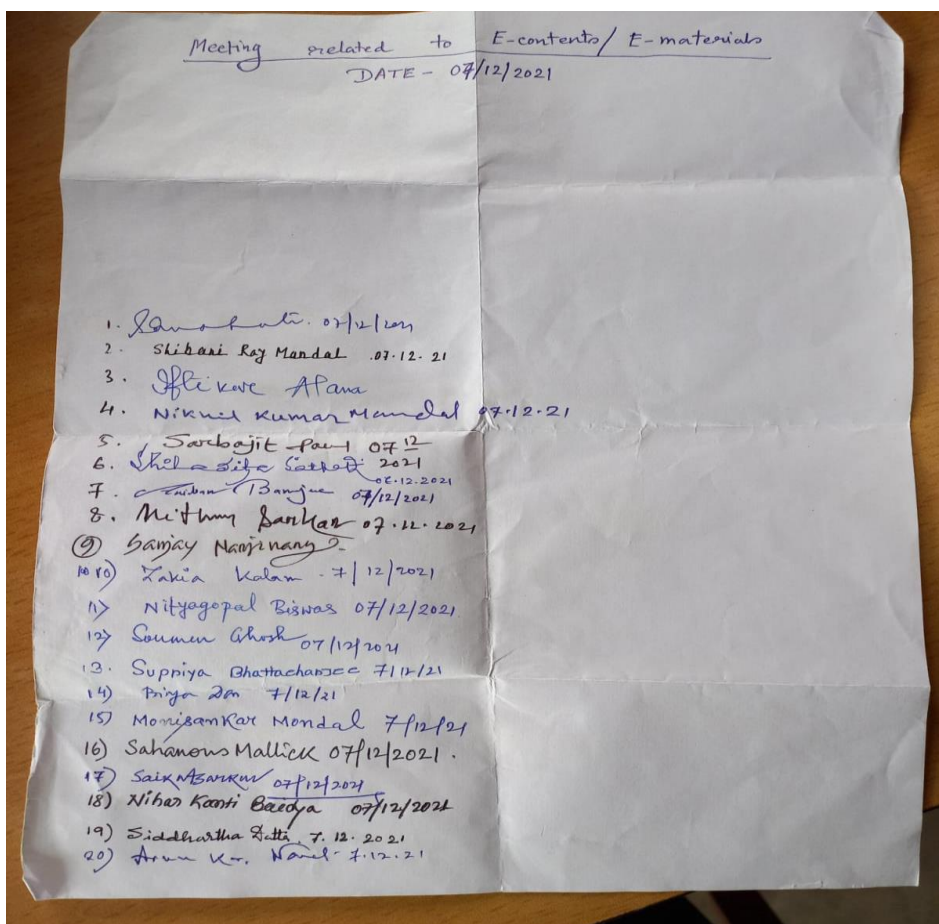 Meeting related to E-contents/ E-materials
DATE - 07/12/2021
1. 07/12/2021
2. Shibani Ray Mandal .07.12.21
3.
4. Nikhil Kumar Mandal 07.12.21
5. Sarbajit Paul 07 12
6. 2021
06.12.2021
7. Banerjee 07/12/2021
8. Mithun Sarkar 07.12.2021
9 Sanjay
10) Zakia Kalam - 7/12/2021
11) Nityagopal Biswas 07/12/2021
12) Soumen Ghosh 07/12/2021
13. Suppiya Bhattacharjee 7/12/21
14) 7/12/21
15) Monisankar Mondal 7/12/21
16) Sahanous Mallick 07/12/2021.
17) 07/12/2021
18) Nihar Kanti Baidya 07/12/2021
19) Siddhartha Dutta 7.12.2021
20) Arun Kr. 7.12.21